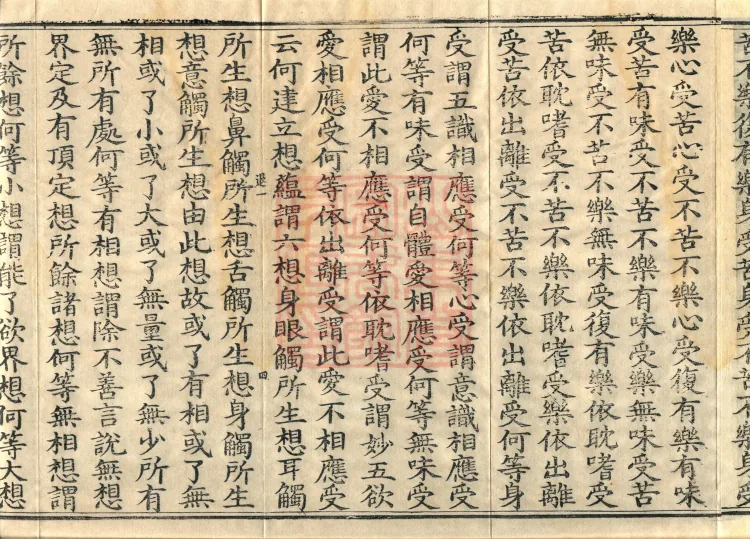 苦不樂復有樂身受苦身受不苦不樂身受
樂心受苦心受不苦不樂心受復有樂有味
受苦有味受不苦不樂有味受樂無味受苦
無味受不苦不樂無味受復有樂依耽嗜受
苦依耽嗜受不苦不樂依耽嗜受樂依出離
受苦依出離受不苦不樂依出離受何等身
受謂五識相應受何等心受謂意識相應受
何等有味受謂自體愛相應受何等無味受
謂此愛不相應受何等依耽嗜受謂妙五欲
愛相應受何等依出離受謂此愛不相應受
云何建立想蘊謂六想身眼觸所生想耳觸
一 四
所生想鼻觸所生想舌觸所生想身觸所生
想意觸所生想由此想故或了有相或了無
相或了小或了大或了無量或了無少所有
無所有處何等有相想謂除不善言說無想
界定及有頂定想所餘諸想何等無相想謂
所餘想何等小想謂能了欲界想何等大想